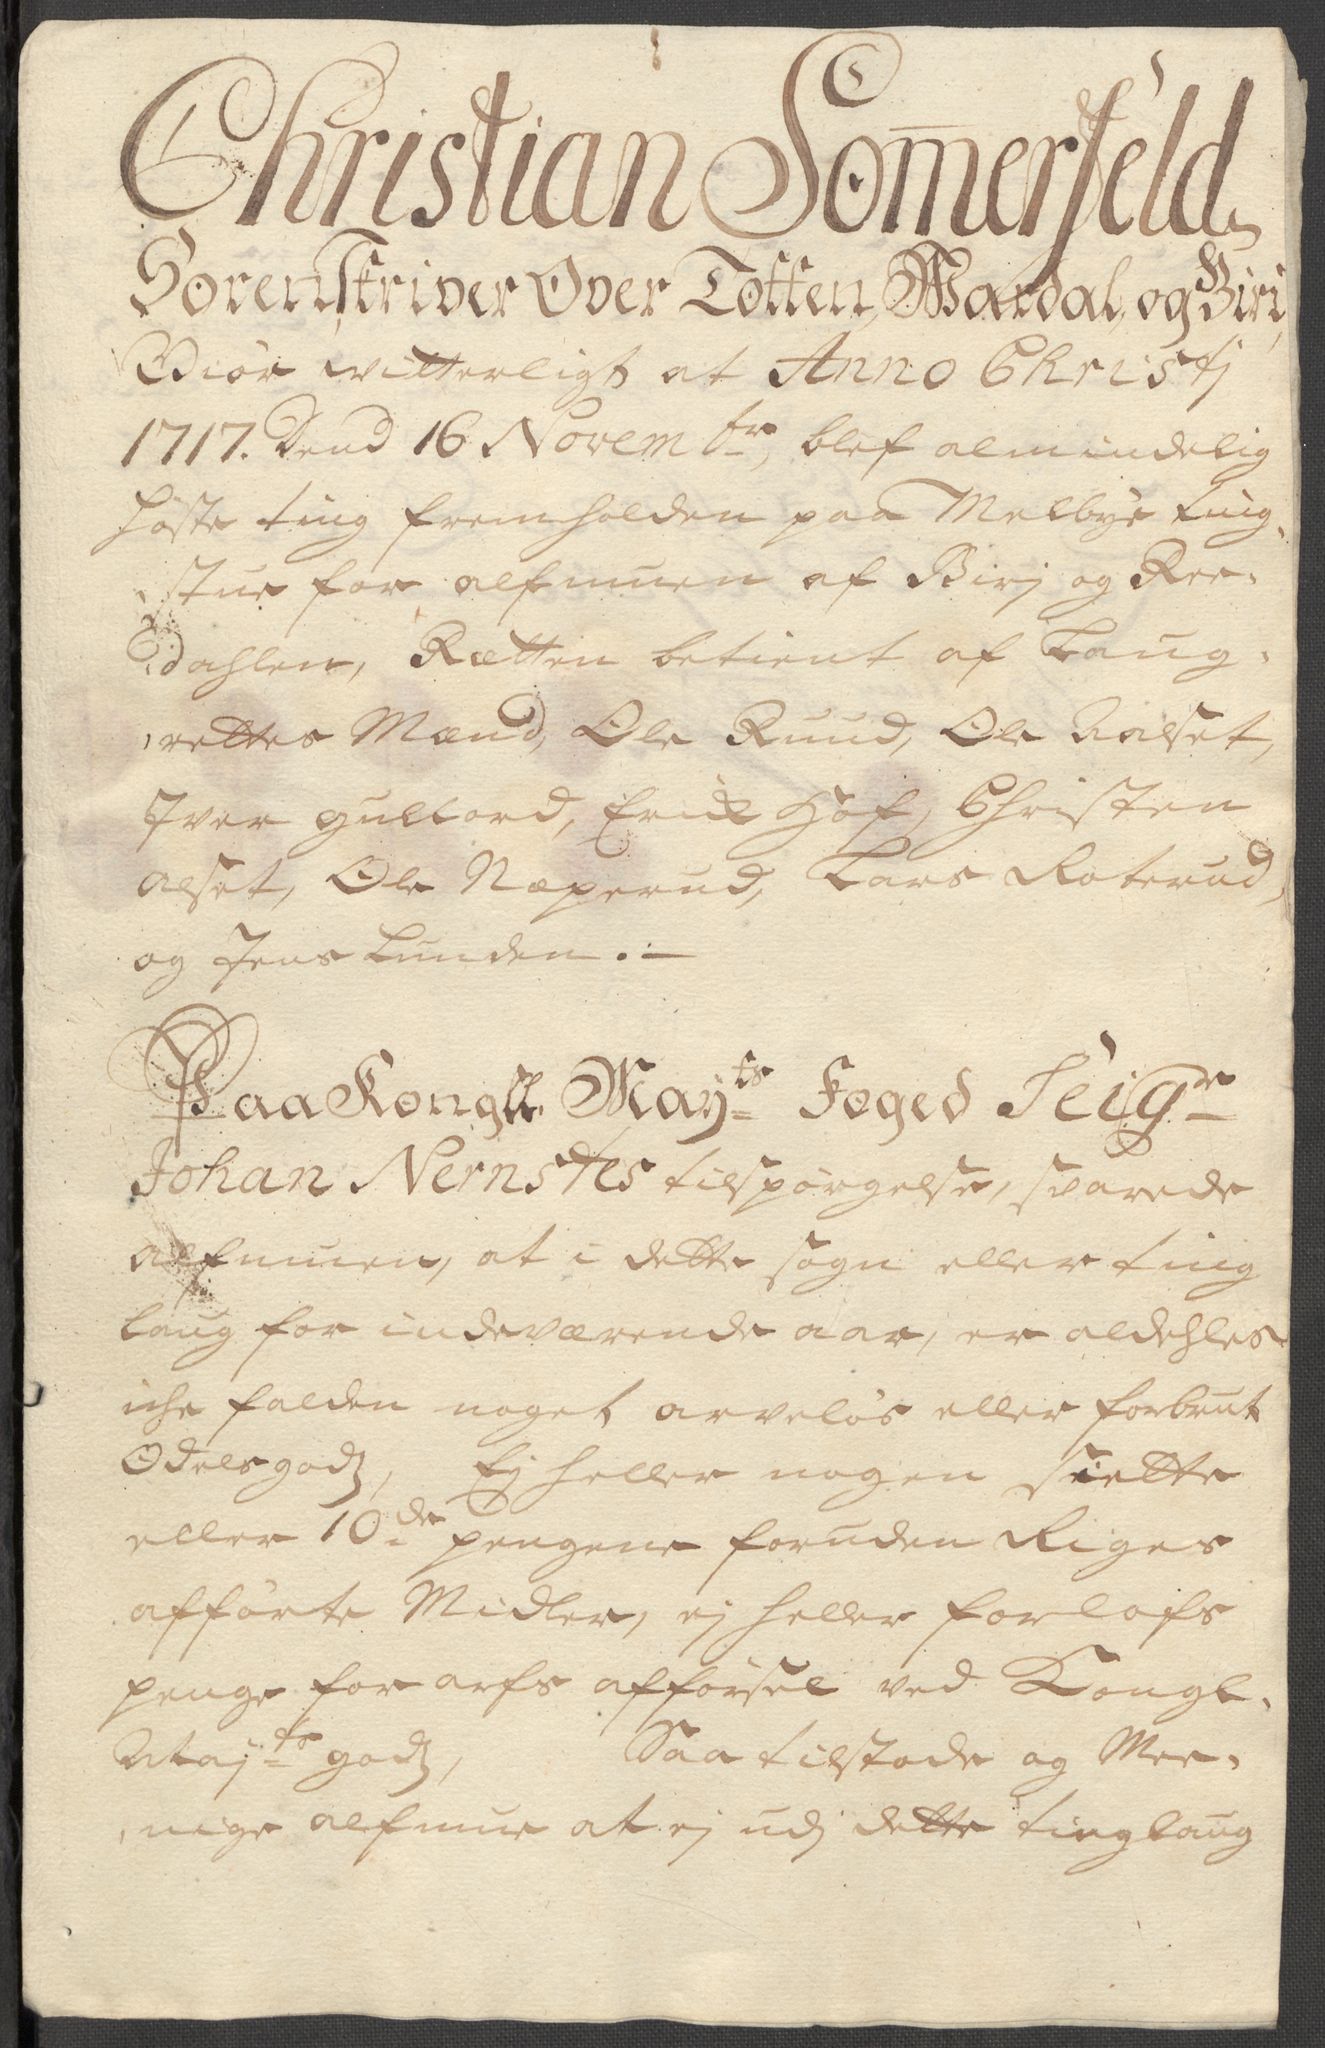 Christian Som̅erfeld
Sorenskriver Over Totten, Wardal, og Birj
Giør witterligt at Anno Christj
1717. Dend 16 Novembr, blef almindelig
høste ting fremholden paa Melbye ting,
stue for alfmuen af Birj og Ree,
dahlen, Rætten betient af Laug,
rettes Mænd, Ole Ruud, Ole Aalset,
Iver gullord, Erick Hof, Christen
alset, Ole Næperud, Lars Roterud,
og Jens Lunden.
Paa Kongll. Mayts Foged Seigr
Johan Nernstes tilspørgelse, svarede
alfmuen, at i dette sogn eller ting
laug for indeværende aar, er aldehles
iche falden noget arveløs eller forbrut
Odelsgodz, Ej heller nogen siette
eller 10de pengene foruden Riges
afførte Midler, ej heller forlofs
penge for arfs afførsel ved Kongl.
Majts godz, Saa tilstode og Mee,
nige alfmue at ej udj dette tinglaug